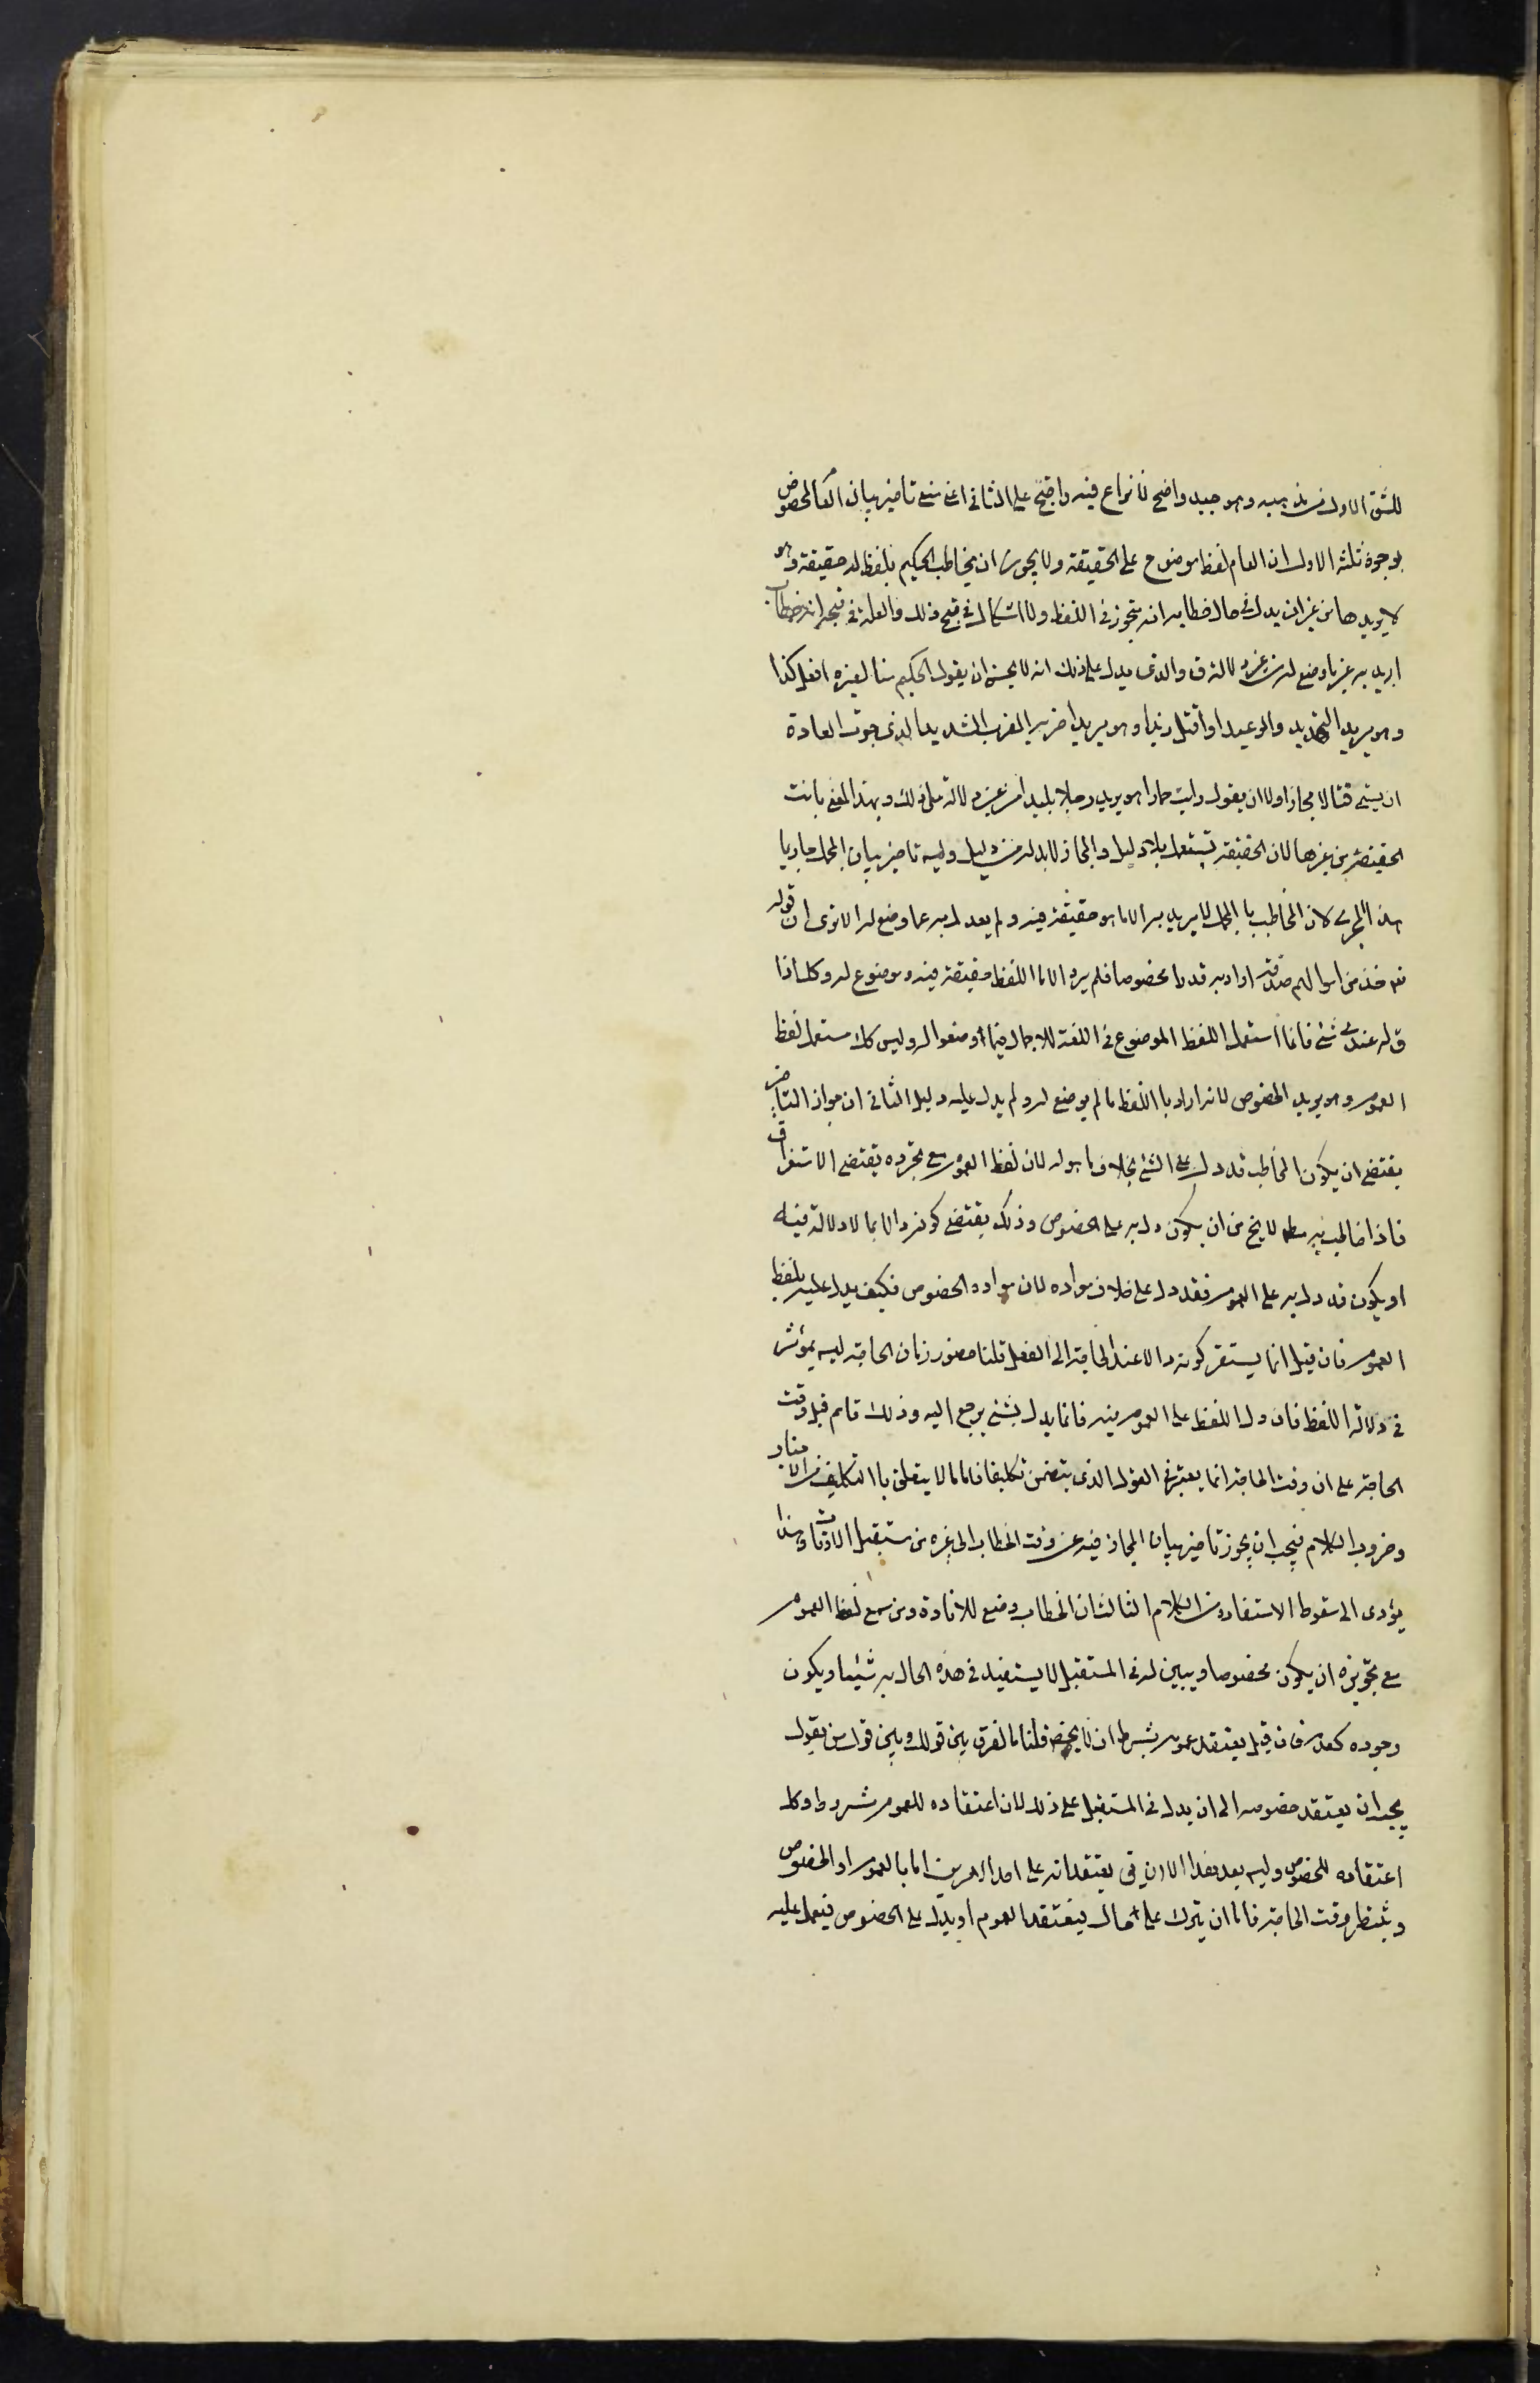 للشق الاول من مذهبه وهو جيد واضح لا نزاع فيه واحتج على الثانى اعنى منع تاخير بيان العام المخصوص
بوجوه ثلثه الاول ان العام لفظ موضوع على الحقيقة ولا يجوز ان يخاطب الحكيم بلفظ له حقيقة وهو
لا يريدها من غير ان يدل فى حال خطابه انه متجوز فى اللفظ ولا اشكال فى قبح ذلك والعلة فى قبحه انه خطاب
اريد به غير ما وضع له من غير دلالة ق والذى يدل على ذلك انه لا يحسن ان يقول الحكيم منا لغيره افعل كذا
وهو يريد التهديد والوعيد او اقتل زيدا وهو يريد اضربه الضرب الشديد الذى جرت العادة
ان يسمى قتالا مجازا ولا ان يقول رايت حمارا وهو يريد رجلا بليدا من غير دلالة على ذلك وبهذا المعنى بانت
الحقيقة من غيرها لان الحقيقة تستعمل بلا دليل والمجاز لابد له من دليل وليس تاخير بيان المجمل جاريا
هذا المجرى لان المخاطب بالمجمل لا يريد به الا ما هو حقيقة فيه ولم يعدل به عما وضع له الا ترى ان قوله
تعه خذ من اموالهم صدقة اراد به قدرا مخصوصا فلم يرد الا ما اللفظ حقيقة فيه وموضوع له وكك اذا
ق له عندى شئ فانما استعمل اللفظ الموضوع فى اللغة للاجمال فيما وضعوا له وليس كك مستعمل لفظ
العموم وهو يريد الخصوص لانه اراد باللفظ ما لم يوضع له ولم يدل عليه دليل الثانى ان جواز التاخير
يقتضى ان يكون المخاطب قد دل على الشئ بخلاف ما هو له لان لفظ العموم مع تجرده يقتضى الاستغراق
فاذا خاطب به مطلقا لا يخ من ان يكون دل به على الخصوص وذلك يقتضى كونه دالا بما لا دلالة فيه
او يكون قد دل به على العموم فقد دل على خلاف مراده لان مراده الخصوص فكيف يدل عليه بلفظ
العموم فان قيل انما يستقر كونه دالا عند الحاجة الى الفعل قلنا حضور زمان الحاجة ليس بمؤثر
فى دلالة اللفظ فان دل اللفظ على العموم فيه فانما يدل بشئ يرجع اليه وذلك قائم قبل وقت
الحاجة على ان وقت الحاجة انما يعتبر فى القول الذى يتضمن تكليفا فاما ما لا يتعلق بالتكليف من الاخبار
وضروب الكلام فيجب ان يجوز تاخير بيان المجاز فيه عن وقت الخطاب الى غيره من مستقبل الاوقات وهذا
يؤدى الى سقوط الاستفادة من الكلام الثالث ان الخطاب وضع للافادة ومن سمع لفظ العموم
مع تجويزه ان يكون مخصوصا ويبين له فى المستقبل لا يستفيد فى هذه الحال به شيئا ويكون
وجوده كعدمه فان قيل يعتقد عمومه بشرط ان لا يخص قلنا ما الفرق بين قولك وبين قول من يقول
يجب ان يعتقد خصوصه الى ان يدل فى المستقبل على ذلك لان اعتقاده للعموم مشروط وكك
اعتقاده للخصوص وليس بعد هذا الا ان يق يعتقد انه على احد الامرين اما بالعموم او الخصوص
وينتظر وقت الحاجة فاما ان يترك على حاله فيعتقد العموم او يدل على الخصوص فيعمل عليه